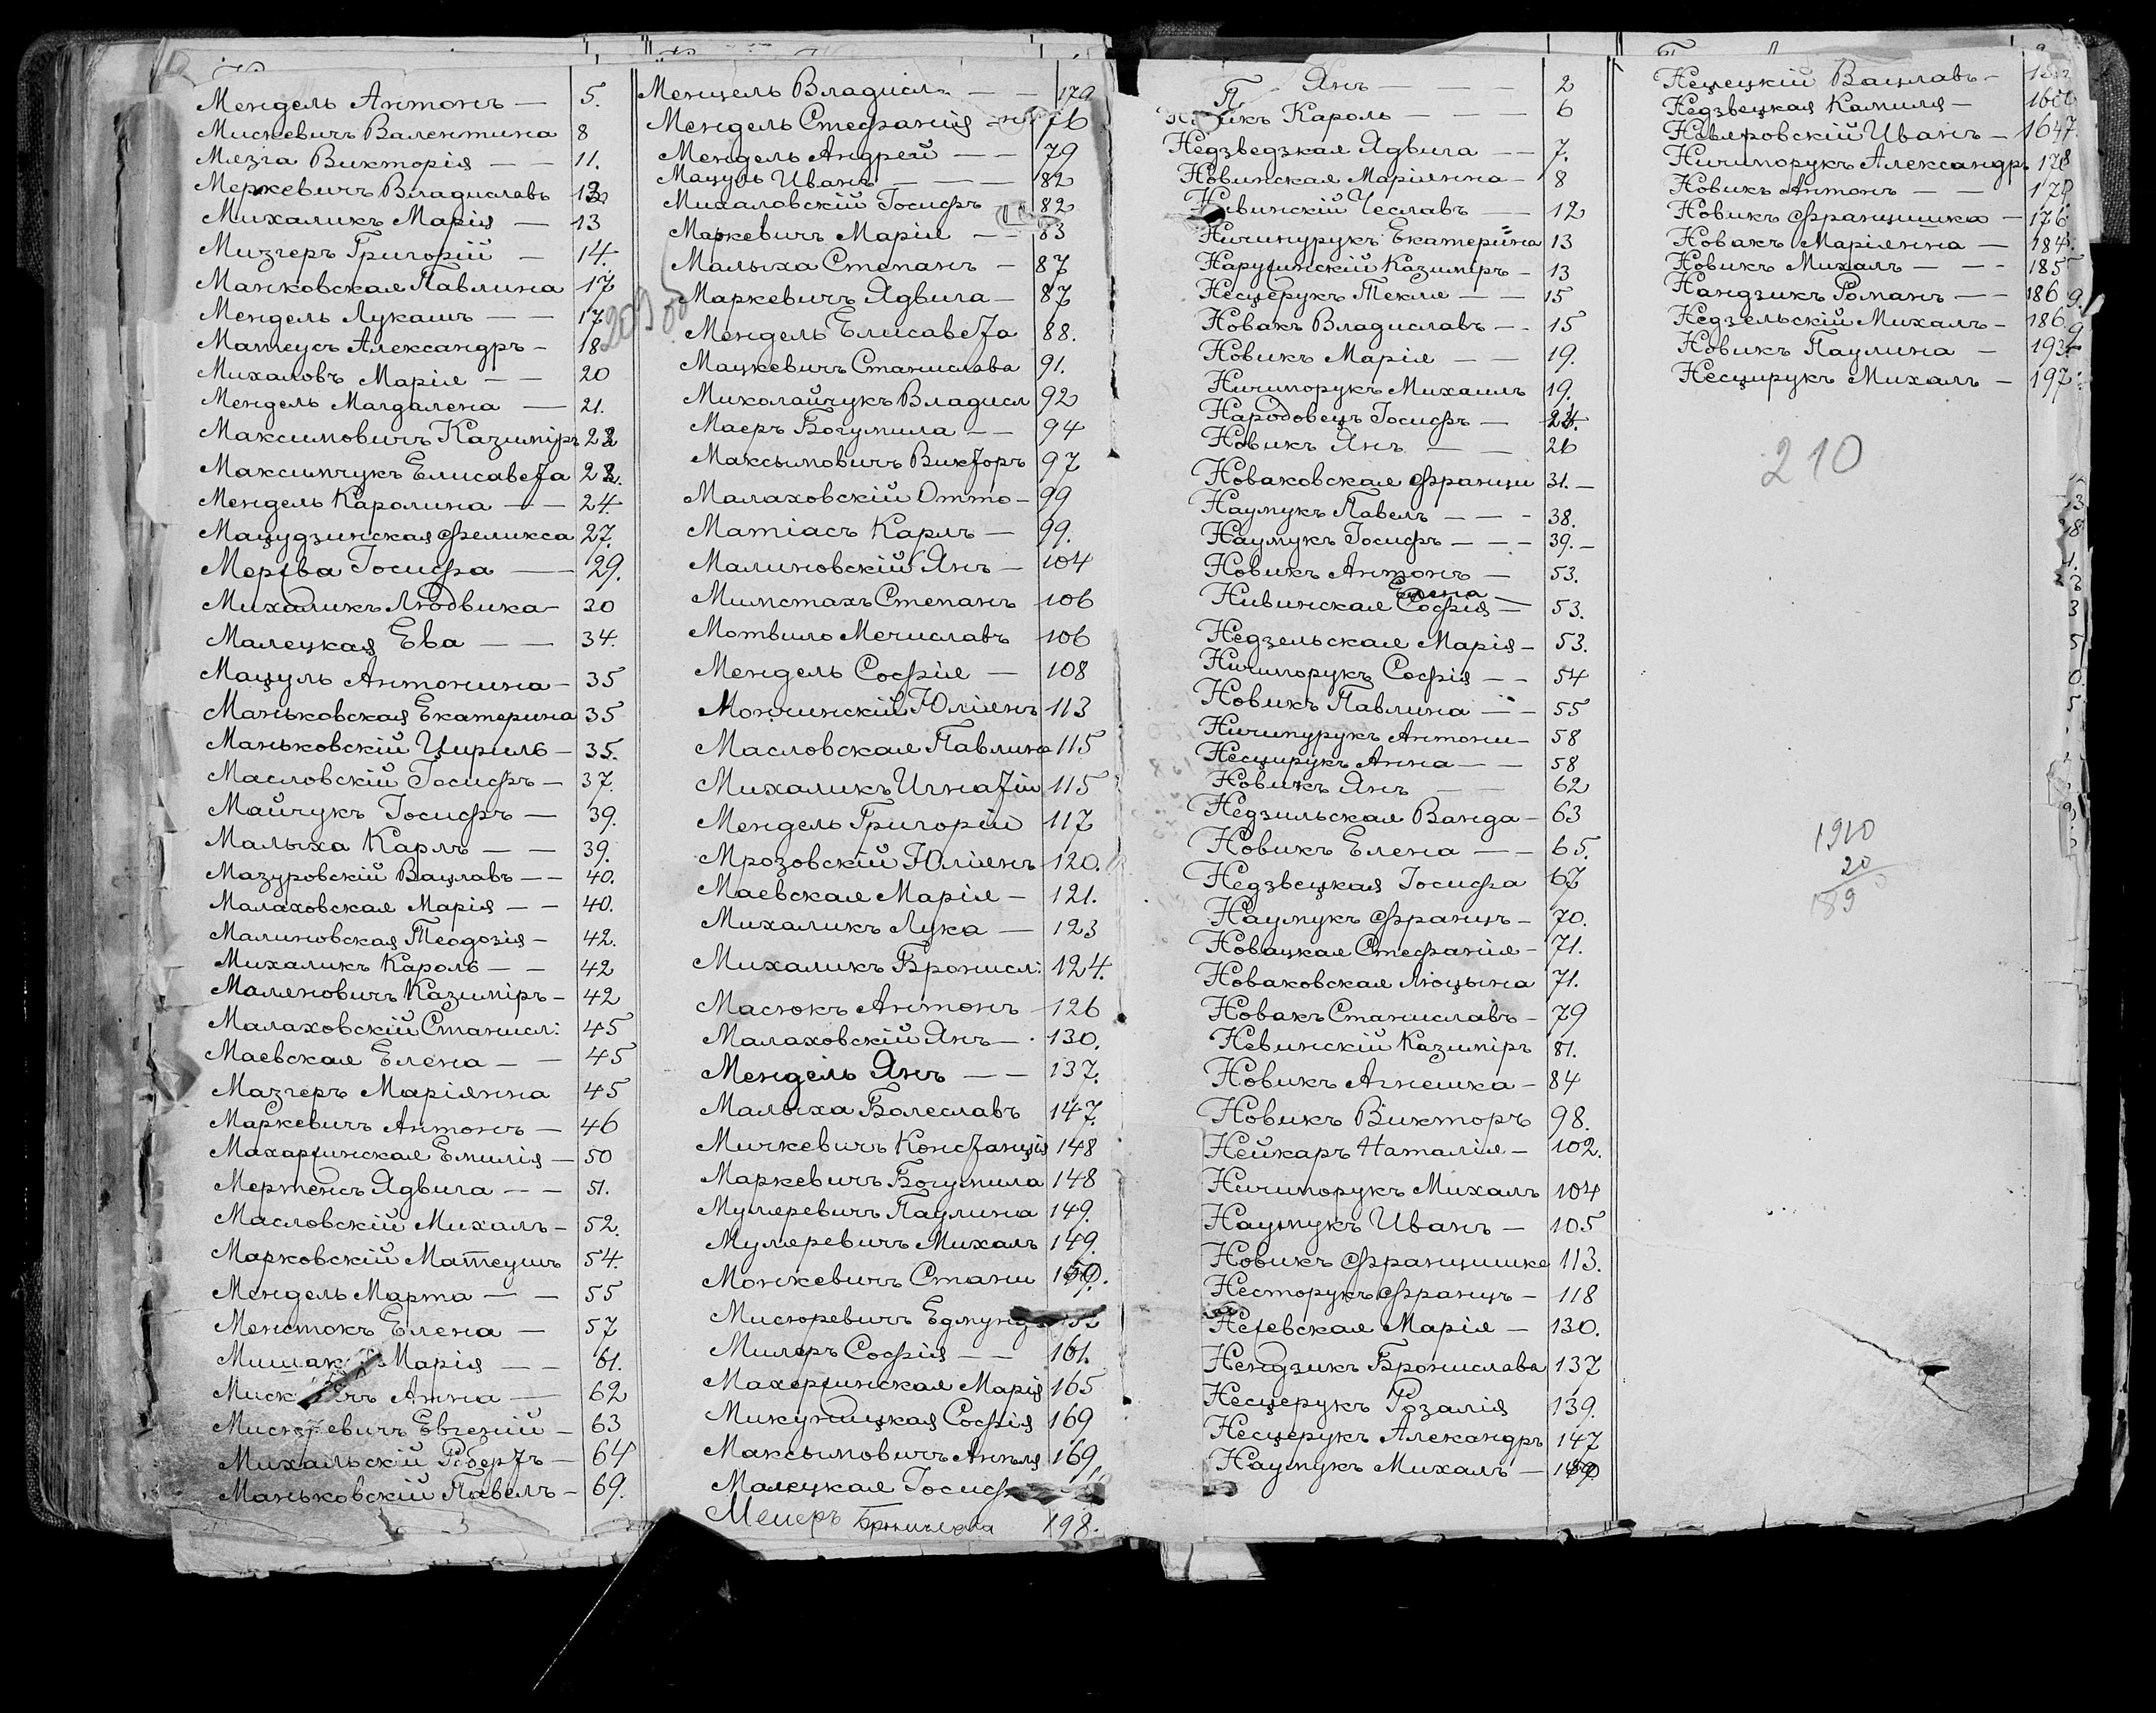 Мендель Антонъ — 5.
Мискевичъ Валентина 8
Мязга Викторія — — 11.
Меркевичъ Владиславъ
Михаликъ Марія — 13
Мизгеръ Григорій — 14.
Манковская Павлина 17
Мендель Лукашъ — — 17
Матеусъ Александръ — 18
Михаловъ Марія — — 20
Мендель Магдалена — 21.
Максимовичъ Казиміръ 22
Максимчукъ Елисавета 22.
Мендель Каролина — — 24
Мацудзинская Феликса 27.
Мертва Іосифа — 29.
Михаликъ Людвика — 20
Малецкая Ева — — 34.
Мацуль Антонина — 35
Маньковская Екатерина 35
Маньковскій Цириль — 35.
Масловскій Іосифъ — 37.
Майчукъ Іосифъ — 39.
Малыха Карлъ — — 39.
Мазуровскій Вацлавъ — — 40.
Малаховская Марія — — 40.
Малиновская Теодозія — 42.
Михаликъ Кароль — — 42
Маляновичъ Казиміръ — 42
Малаховскій Станисл: 45
Маевская Елена — — 45
Мазгеръ Маріянна 45
Маркевичъ Антонъ — 46
Махартинская Емилія — 50
Мертенсъ Ядвига — — 51.
Масловскій Михалъ — 52.
Марковскій Матеушъ 54.
Мендель Марта — — 55
Менстокъ Елена — 57
Марія — — 61.
Анна — 62
Мисюревичъ Евгеній — 63
Михальскій Робертъ — 64
Маньковскій Павелъ — 69.
Менцель Владисл — — 179
Мендель Стефанія 76
Мендель Андрей — — 79
Мацуль Иванъ — — — 82
Михаловскій Іосифъ 82
Маркевичъ Марія — — 83
Малыха Степанъ — 87
Маркевичъ Ядвига — 87
Мендель Елисавета 88.
Мацкевичъ Станислава 91.
Миколайчукъ Владисл 92
Маеръ Богумила — — 94
Максымовичъ Викторъ 97
Малаховскій Отто — 99
Матіасъ Карлъ — 99.
Малиновскій Янъ — 104
Мимстахъ Степанъ 106
Мотвило Мечиславъ 106
Мендель Софія — 108
Мончинскій Юліянъ 113
Масловская Павлина 115
Михаликъ Игнатій 115
Мендель Григорій 117
Мрозовскій Юліянъ 120.
Маевская Марія — 121.
Михаликъ Лука — 123
Михаликъ Бронисл: 124.
Масюкъ Антонъ — 126
Малаховскій Янъ — 130.
Мендель Янъ — — 137.
Малыха Болеславъ 147.
Мичкевичъ Констанція 148
Маркевичъ Богумила 148
Муляревичъ Паулина 149.
Муляревичъ Михалъ 149.
Монкевичъ Стани
Мисюревичъ Едмундъ
Милеръ Софія — — 161.
Махартинская Марія 165
Микуницкая Софія 169
Максымовичъ Анеля 169
Малецкая Іосиф
Мееръ Бронислава 198.
Янъ — — — 2
Кароль — — — 6
Недзведзкая Ядвига — — 7.
Новинская Маріянна — 8
Чеславъ — — 12
Ничипурукъ Екатерина 13
Нарушинскій Казиміръ — 13
Несцерукъ Текля — — 15
Новакъ Владиславъ — — 15
Новикъ Марія — — 19.
Ничипорукъ Михаилъ 19.
Народовецъ Іосифъ — 24.
Новикъ Янъ — — 26
Новаковская Франци 31. —
Наумукъ Павелъ — — — 38.
Наумукъ Іосифъ — — — 39. —
Новикъ Антонъ — 53.
Елена —
Нивинская Софія — 53.
Недзельская Марія — 53.
Ничипорукъ Софія — — 54
Новикъ Павлина — — 55
Ничипурукъ Антони — 58
Несцирукъ Анна — — 58
Новикъ Янъ — — 62
Недзильская Ванда — 63
Новикъ Елена — — 65.
Недзвецкая Іосифа 67
Наумукъ Францъ — 70.
Новацкая Стефанія — 71.
Новаковская Люцына 71.
Новакъ Станиславъ — 79
Невинскій Казиміръ 81.
Новикъ Агнешка — 84
Новикъ Викторъ 98.
Нейкаръ Наталія — 102.
Ничипорукъ Михалъ 104
Наумукъ Иванъ — 105
Новикъ Францишка 113.
Несторукъ Францъ — 118
Марія — 130.
Нендзикъ Бронислава 137
Несцерукъ Розалія 139.
Несцерукъ Александръ 147
Наумукъ Михалъ —
Нецецкій Вацлавъ —
Недзвецкая Камиля —
Невяровскій Иванъ — 1647.
Ничипорукъ Александръ 178
Новикъ Антонъ — —
Новикъ Францишка — 176.
Новакъ Маріянна — 184.
Новикъ Михалъ — — — 185
Нандзикъ Романъ — — 186
Недзельскій Михалъ — 186
Новикъ Паулина — 193.
Несцирукъ Михалъ — 197.
210
1910
20
189